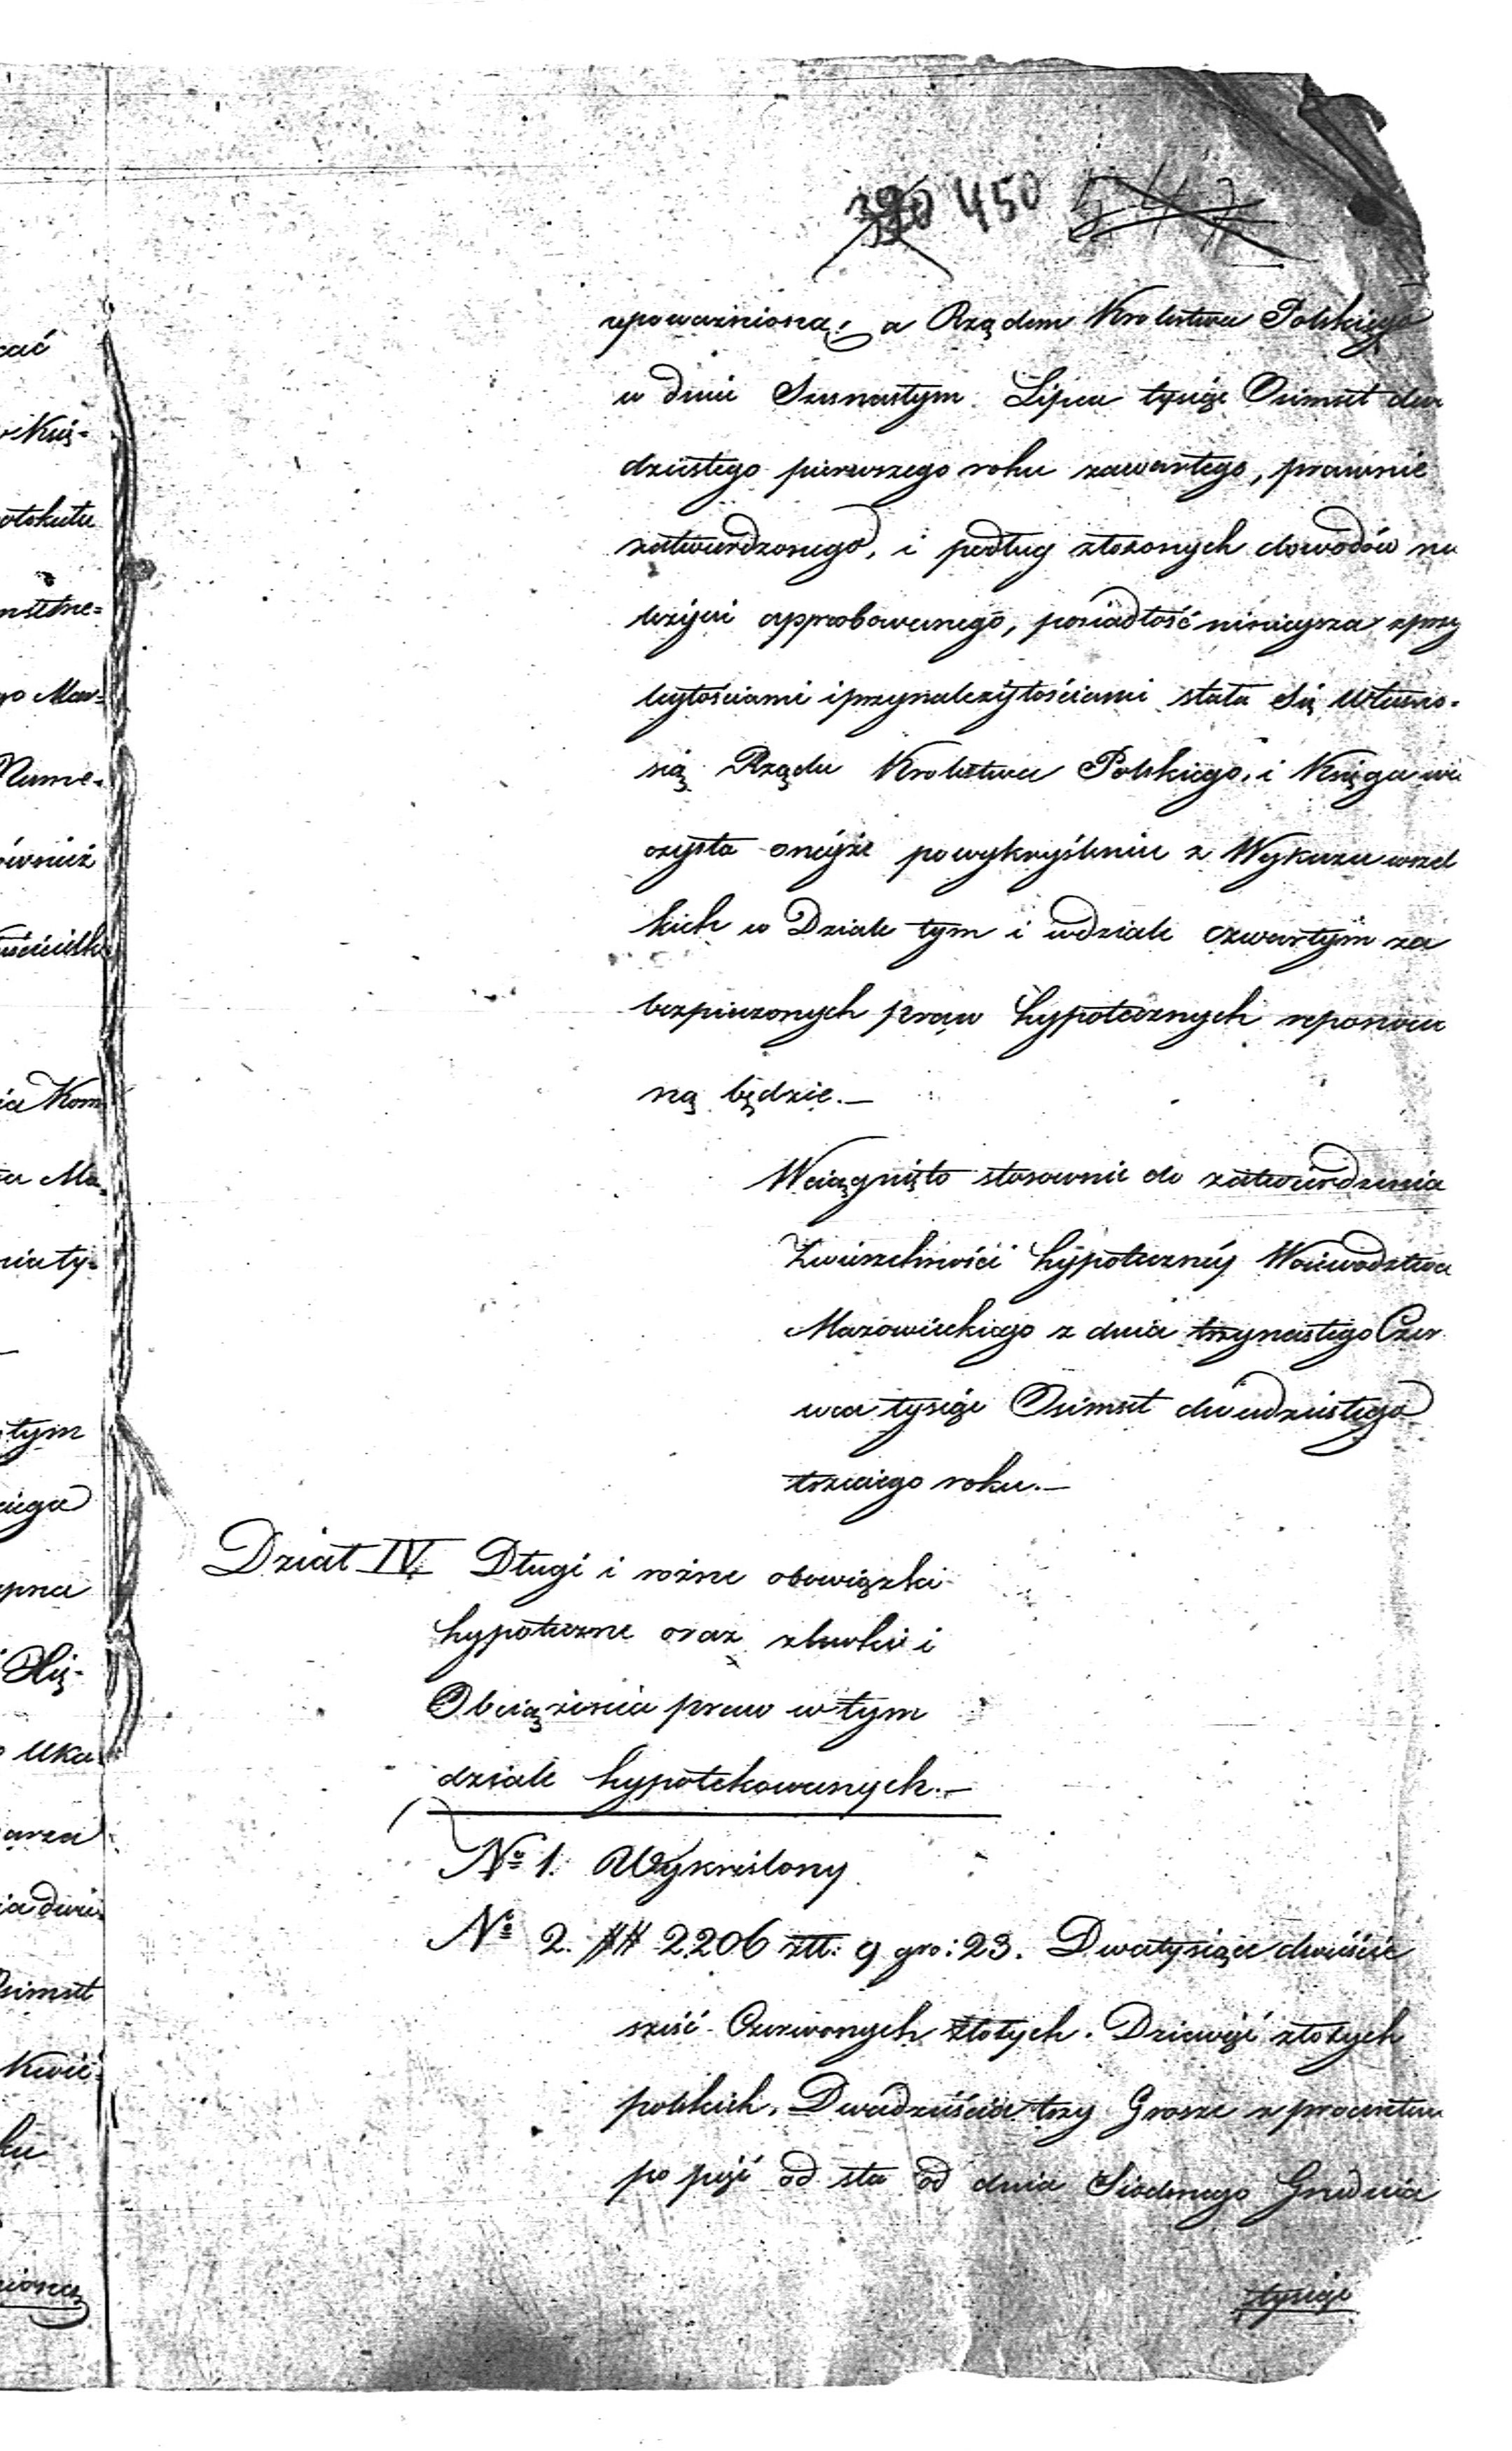 390 450
upoważnioną, a Rządem Krolestwa Polskiego
w dniu Szesnastym Lipca tysiąc Osimset dwu
dziestego pierwszego roku zawartego, prawnie
zatwierdzonego, i podług złożonych dowodów na
leżyci approbowanego, posiadłość ninieysza z przy
ległościami i przynależytościami stała się własno-
sią Rządu Krolestwa Polskiego, i Księga wie
czysta oneyże po wykryśleniu z Wykazu wszel
kich w Dziale tym i w dziale czwartym za
bezpieczonych praw hypotecznych reponowa
ną będzie.—
Wciągnięto stosownie do zatwierdzenia
Zwierzchności hypoteczney Woiewodztwa
Mazowieckiego z dnia trzynastego Czer
wca tysiąc Osimset dwudziestego
trzeciego roku.—
Dział IV. Długi i rożne obowiązki
hypoteczne oraz zlewki i
Obciążenia praw w tym
dziale hypotekowanych.—
No 1. Wykreślony
No 2. ## 2206 złl: 9 gro: 23. Dwatysiące dwieście
sześć Czerwonych Złotych. Dziewięć złotych
polskich, Dwadzieścia trzy Grosze z procentem
po pięć od sta od dnia Siodmego Grudnia
tysiąc
cać
Księ-
otokułu
go Maz-
Nume-
ównież
ia Kom
tym
iega
Uka
arza
Osimset
Kwie-
ku
niona